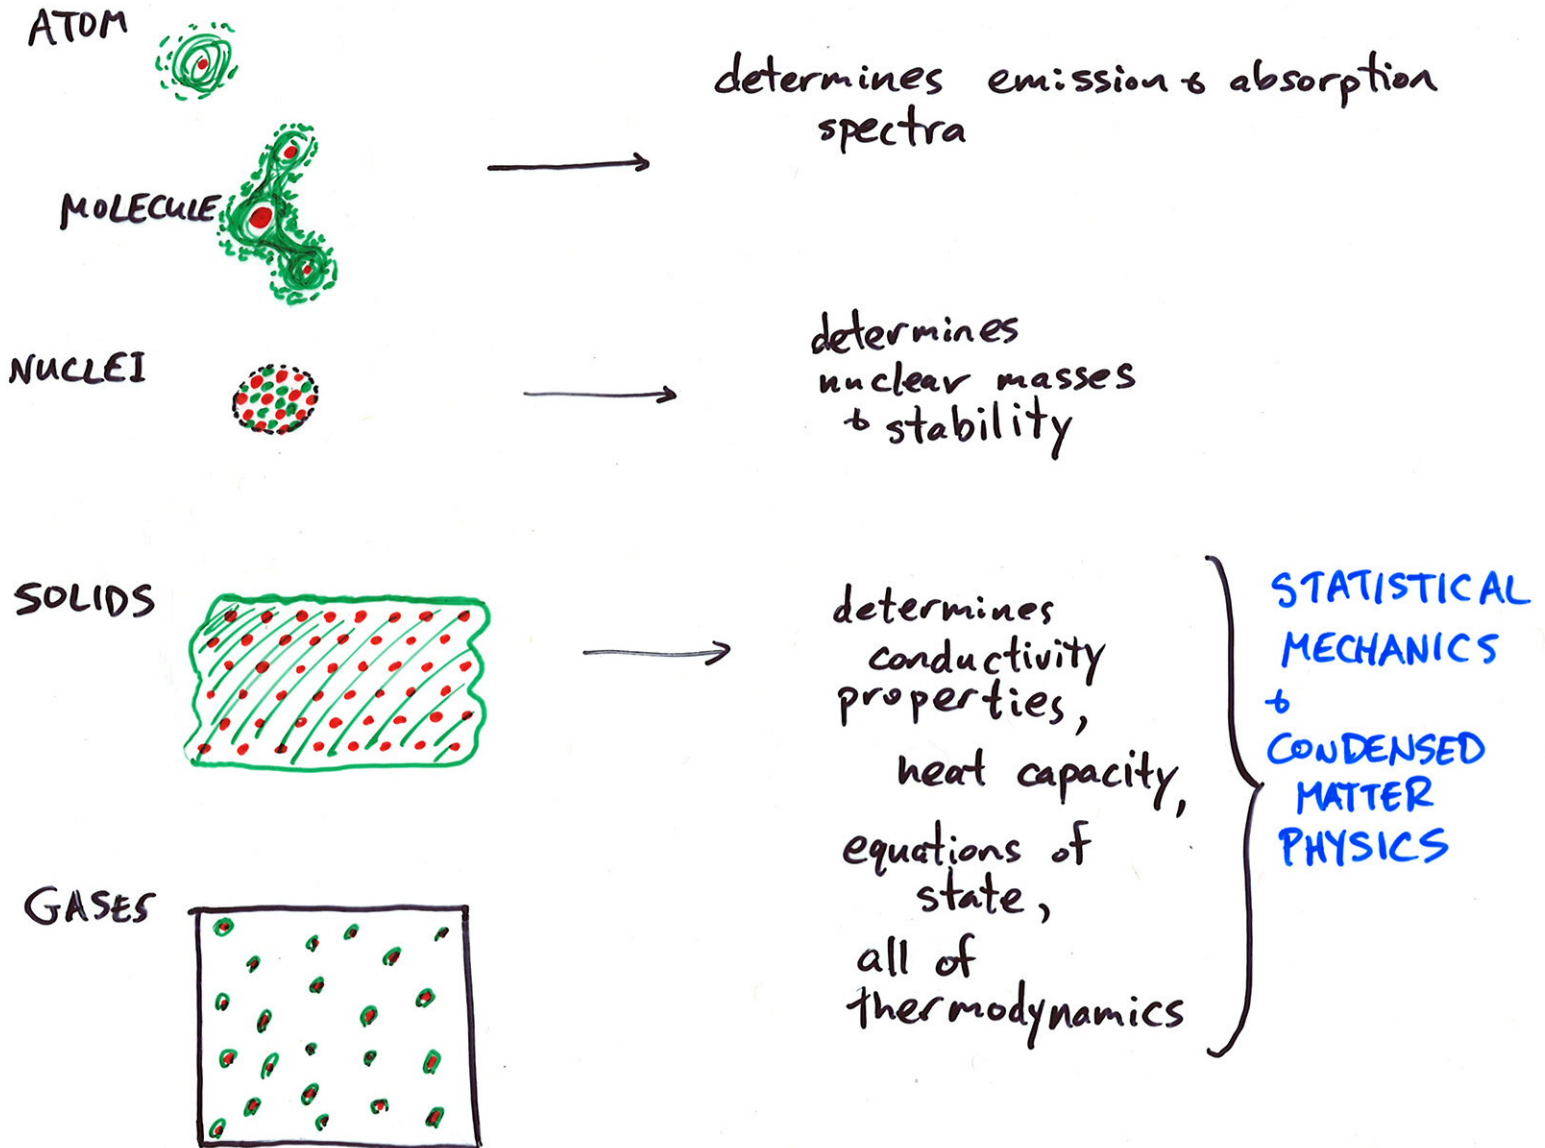 ATOM
determines emission & absorption
spectra
MOLECULE
determines
nuclear masses
& stability
NUCLEI
SOLIDS
determines
conductivity
properties,
heat capacity,
equations of
state,
all of
thermodynamics
STATISTICAL
MECHANICS
&
CONDENSED
MATTER
PHYSICS
GASES